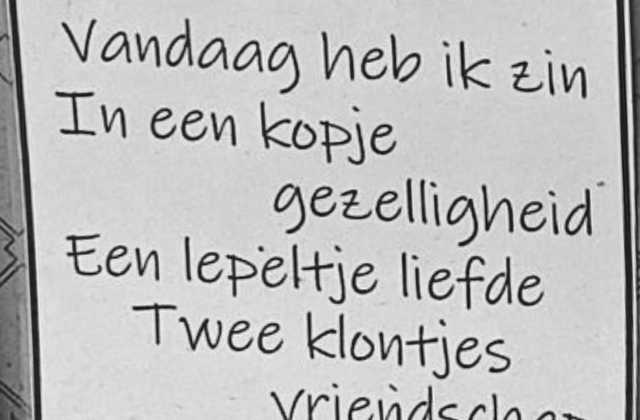 Vandaag heb ik zin
In een kopje
gezelligheid
Een lepeltje liefde
Twee klontjes